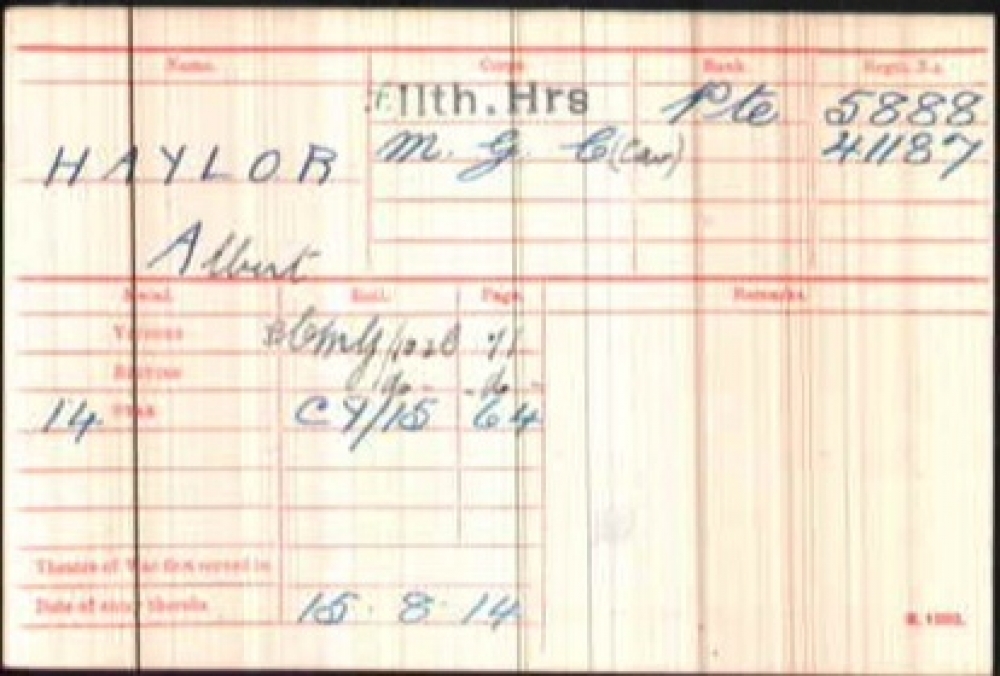 Name. Corps Rank Regtl. No.
11th. Hrs Pte 5888
HAYLOR M. G. C (Cav) 41187
Albert
Medal. Roll. Page. Remarks.
VICTORY 71
BRITISH do - - do -
14 STAR C Y/15 64
Theatre of War first served in
Date of entry therein 15. 8. 14